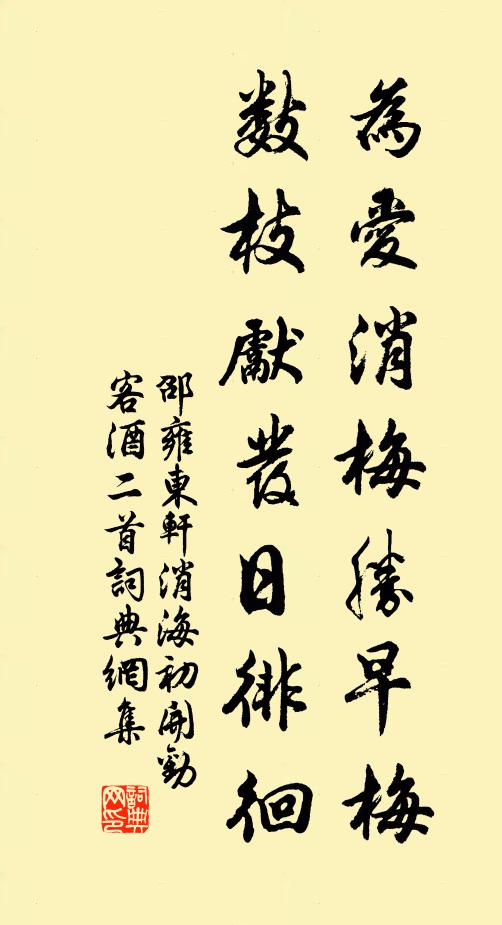 為愛消梅勝早梅
數枝獻發日徘徊
邵雍東軒消海初開勸
客酒二首詞典網集
詞典网印